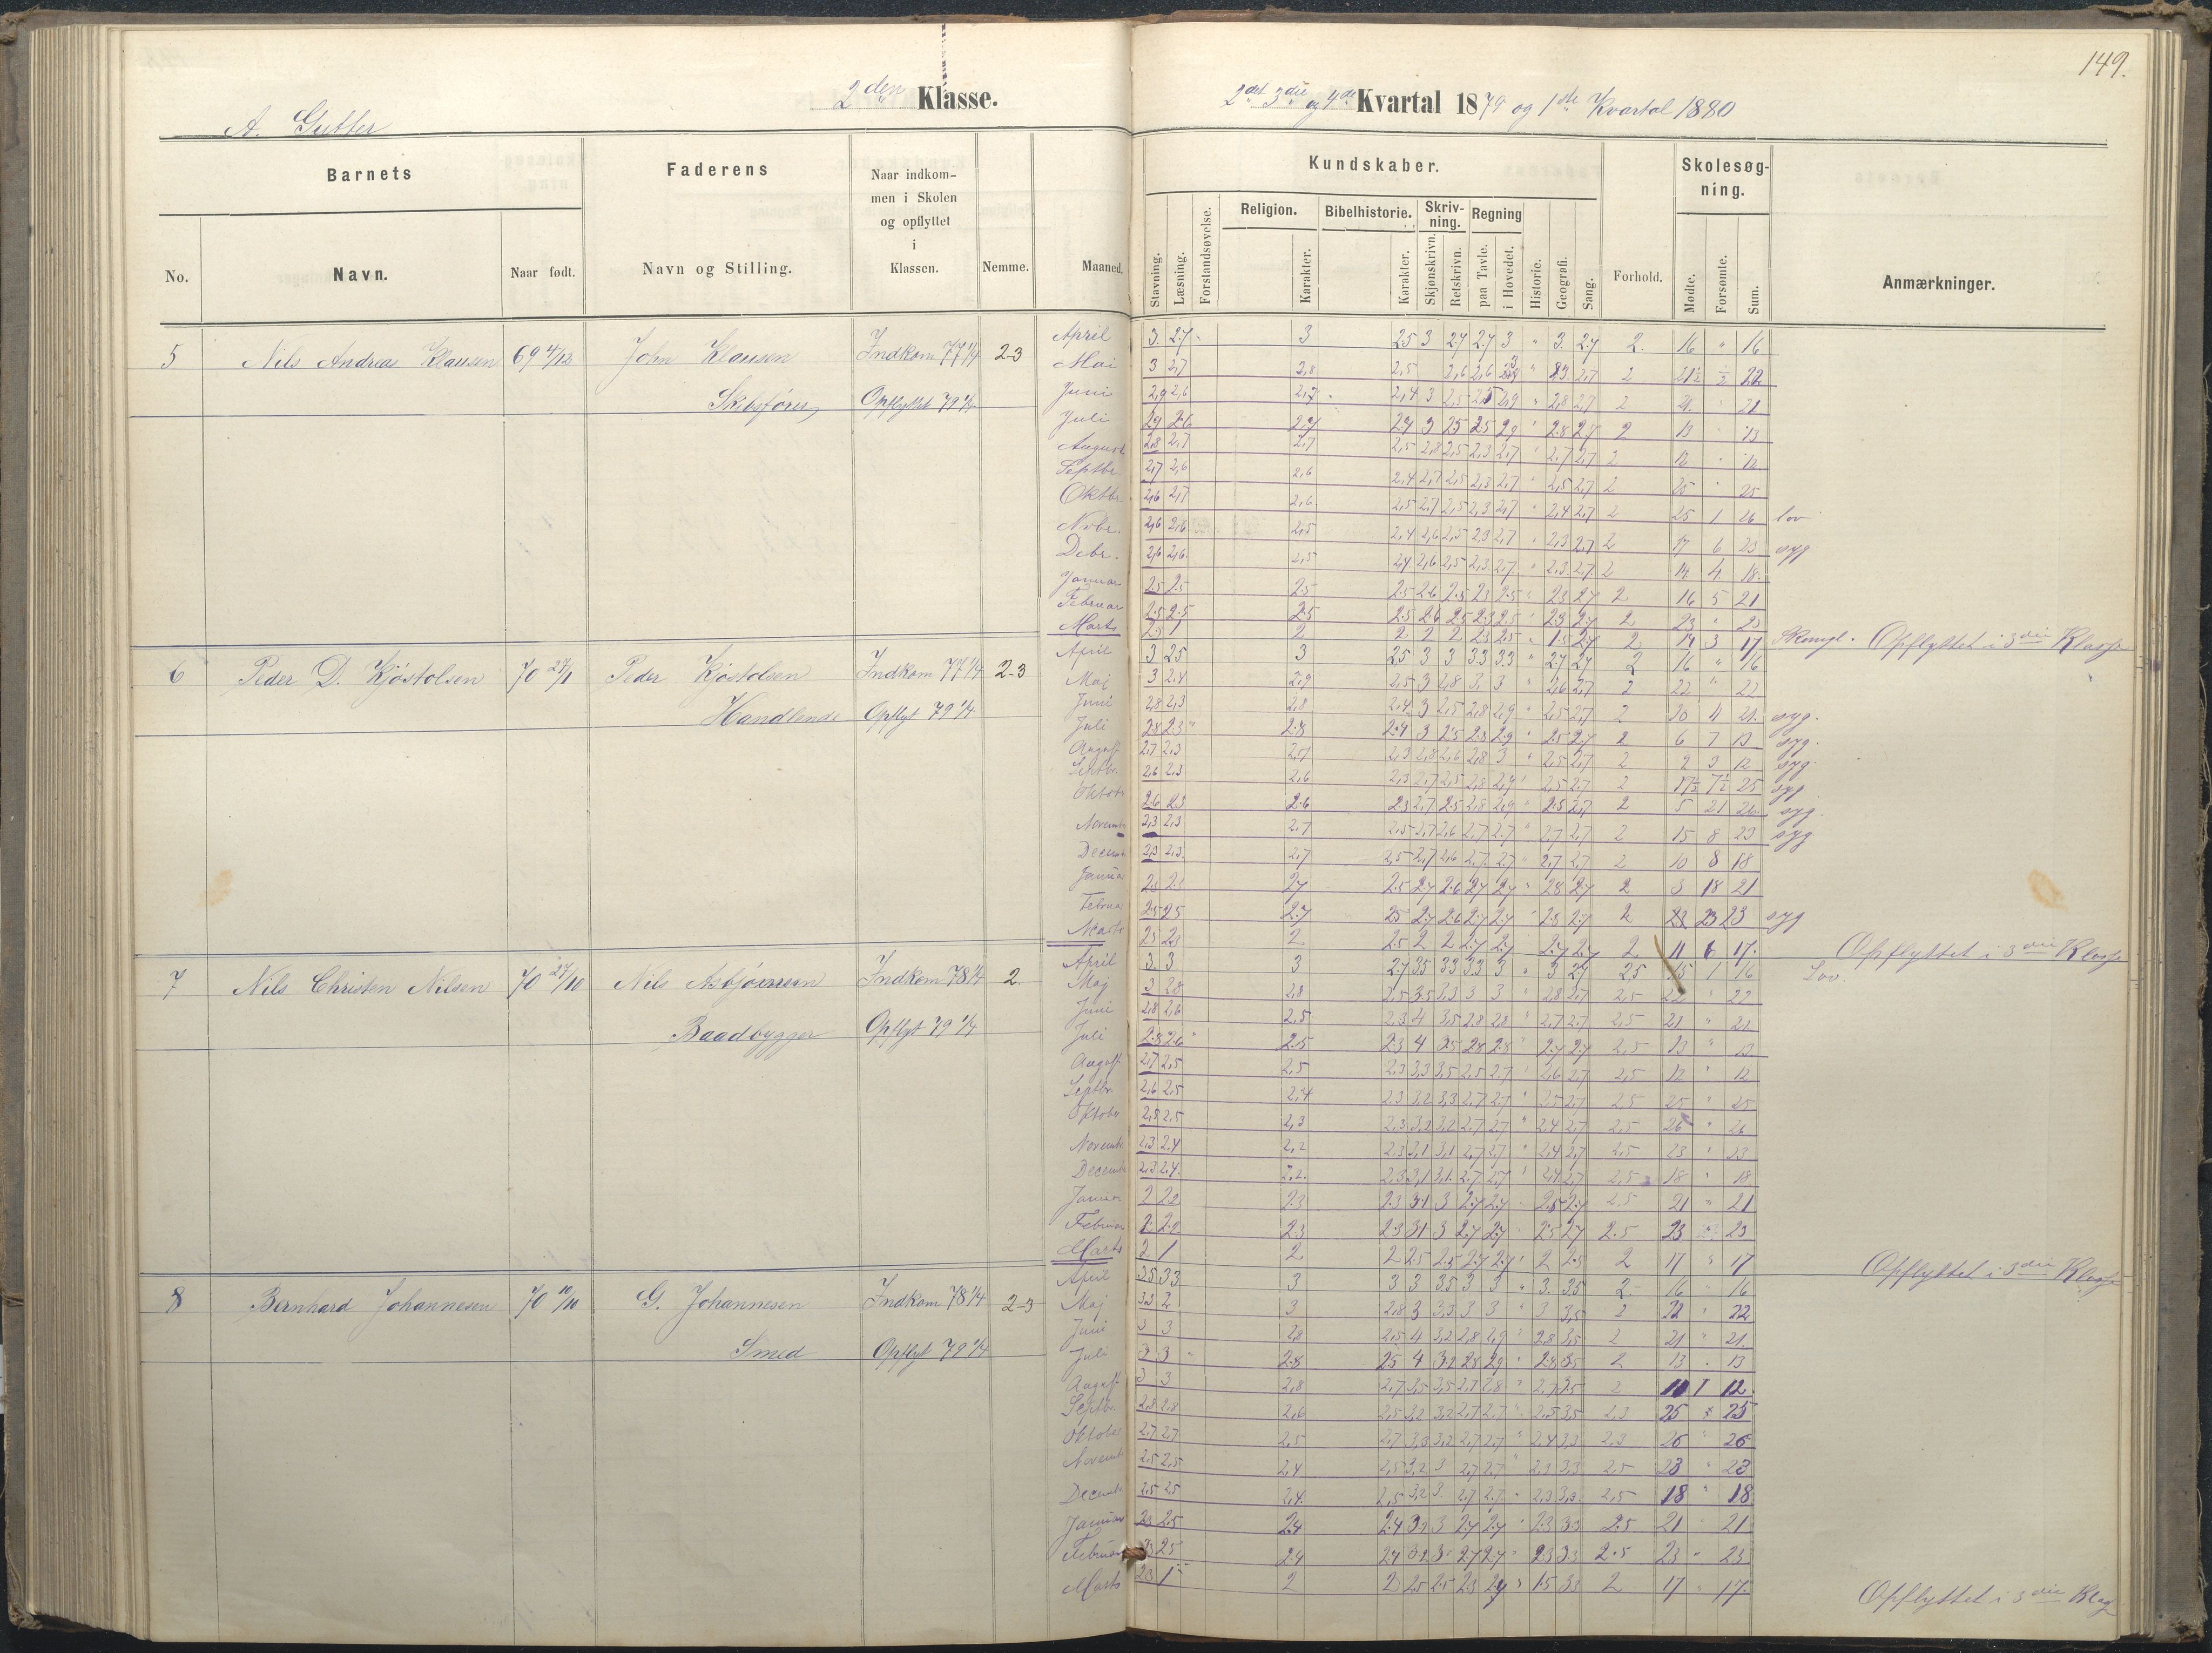 149.
2den Klasse.
2det 3die og 4de Kvartal 1879 og 1ste Kvartal 1880
A. Gutter
Barnets
Faderens
Naar indkommen i Skolen og opflyttet i Klassen.
Nemme.
Maaned.
Kundskaber.
Skolesøgning.
No.
Navn.
Naar født.
Navn og Stilling.
Stavning.
Læsning.
Forstandsøvelse.
Religion.
Karakter.
Bibelhistorie.
Karakter.
Skrivning.
Skjønskrivn.
Retskrivn.
Regning
paa Tavle.
i Hovedet.
Historie.
Geografi.
Sang.
Forhold.
Mødte.
Forsømte.
Sum.
Anmærkninger.
5 Nils Andreas Klausen 69 4/12 John Klausen Indkom 77 1/4 2-3
Skibsfører Opflyttet 79 1/4
April 3. 2.7 3 2.5 3 2.7 2.7 3 " 3. 2.7 2. 16 " 16
Mai 3 2,7 2,8 2,5 2,6 2,6 2,7 2 21½ ½ 22
Juni 2,9 2,6 2,7 2,4 3 2,5 2,9 " 2,8 2,7 2 21 " 21
Juli 2.9 2.6 2.7 2.4 3 2.5 2.5 2.9 " 2.8 2.7 2 13 " 13
August 2,8 2,7 2,7 2,5 2,8 2,5 2,3 2,7 " 2,7 2,7 2 12 " 12
Septbr. 2,7 2,6 2,6 2,4 2,7 2,5 2,3 2,7 " 2,5 2,7 2 25 " 25
Oktbr. 2,6 2,7 2,6 2,5 2,7 2,5 2,3 2,7 " 2,4 2,7 2 25 1 26 lov
Nvbr. 2,6 2,6 2,5 2,4 2,6 2,5 2,3 2,7 " 2,3 2,7 2 17 6 23 syg
Debr. 2,6 2,6 2,5 2,4 2,6 2,5 2,3 2,7 " 2,3 2,7 2 14 4 18.
Januar 2.5 2.5 2.5 2.5 2.6 2.5 2.3 2.5 " 2.3 2.7 2 16 5 21
Februar 2.5 2.5 2.5 2.5 2.6 2.5 2.3 2.5 " 2.3 2.7 2 23 " 23
Marts 2.5 1 2 2. 2 2 2.3 2.5 " 1.5 2.7 2 14 3 17 Opflyttet i 3die Klasse
6 Peder D. Kjøstolsen 70 27/1 Peder Kjøstolsen Indkom 77 1/4 2-3
Handlende Opflyt 79 1/4
April 3 2.5 3 2.5 3 3 3.3 3.3 " 2.7 2.7 2 16 " 16
Maj 3 2,4 2,9 2,5 3 2,8 3, 3 " 2,6 2,7 2 22 " 22
Juni 2,8 2,3 2,8 2,4 3 2,5 2,8 2,9 " 2,5 2,7 2 syg.
Juli 2.8 2.3 " 2.8 2.4 3 2.5 2.8 2.9 " 2.5 2.7 2 6 7 13 syg.
August 2,7 2,3 2,7 2,3 2,8 2,6 2,8 3 " 2,5 2,7 2 9 3 12 syg.
Septbr. 2,6 2,3 2,6 2,3 2,7 2,5 2,8 2,9 " 2,5 2,7 2 17½ 7½ 25 syg
Oktob 2.6 2.3 2.6 2.3 2,7 2.5 2,8 2,9 " 2.5 2,7 2 5 21 26 syg.
Novemb 2,3 2,3 2,7 2,5 2,7 2,6 2,7 2,7 " 2,7 2,7 2 15 8 23 syg
Decemb 2,3 2,3. 2,7 2,5 2,7 2,6 2,7 2,7 " 2,7 2,7 2 10 8 18
Januar 2.7 2.5 2.7 2.6 2.7 2.7 " 2.8 2.7 2 3 18 21
Februar 2.5 2.5 2.7 2.5 2.7 2.6 2.7 2.7 " 2.8 2.7 2 23 23 syg
Marts 2.5 2.3 2. 2.5 2 2 2.7 2.7 " 2.7 2.7 2 11 6 17. Opflyttet i 3die Klasse
7 Nils Christen Nilsen 70 27/10 Nils Asbjørnsen Indkom 78 1/4 2.
Baadbygger Opflyt 79 1/4
April 3. 3. 3 2.7 3.5 3.3 3.3 3 " 3 2.7 2.5 15 1 16 Lov.
Maj 3 2.8 2,8 2,5 3.5 3,3 3 3 " 2,8 2,7 2,5 22 " 22
Juni 2,8 2,6 2,5 2,3 4 3,5 2,8 2,8 " 2,7 2,7 2,5 21 " 21
Juli 2.8 2.6 " 2.5 2.3 4 3.5 2.8 2.8 " 2.7 2.7 2,5 13 " 13
August 2,7 2,5 2,5 2,3 3,3 3,5 2,5 2,7 " 2,6 2,7 2,5 12 " 12
Septbr. 2,6 2,5 2,4 2,3 3,2 3,3 2,7 2,7 " 2,5 2,7 2,5 25 " 25
Oktober 2,5 2,5 2,3 2,3 3,2 3,2 2,7 2,7 " 2,4 2,7 2,5 26 " 26
Novemb 2,3 2,4 2,2 2,3 3,1 3,1 2,7 2,7 " 2,4 2,7 2,5 23 " 23
Decemb 2,3 2,4. 2,2. 2,3 3,1 3,1. 2,7 2,7 " 2,4 2,7 2,5 18 " 18
Januar 2 2.2 2.3 2.3 3.1 3 2.7 2.7 " 2.5 2.7 2.5 21 " 21
Februar 2. 2.2 2.3 2.3 3.1 3 2.7 2.7 " 2.5 2.7 2.5 23 23
Marts 2 1 2 2 2.5 2.5 2.7 2.7 " 2 2.5 2 17 " 17 Opflyttet i 3die Klasse
8 Bernhard Johannesen 70 10/10 G. Johannesen Indkom 78 1/4 2-3
Smed Opflyt 79 1/4
April 3.5 3.3 3 3 3 3.5 3 3 " 3. 3.5 2. 16 " 16
Maj 3.3 2 3 2,8 3 3,3 3 3 " 3 3,5 2 22 " 22
Juni 3 3 2,8 2,5 4 3,2 2,8 2,9 " 2,8 3,5 2 21 " 21.
Juli 3 3 " 2.8 2.5 4 3.2 2.8 2.9 " 2.8 3.5 2 13 " 13
August 3 3 2,8 2,7 3,5 3,5 2,7 2,8 " 2,7 3,5 2 1 12.
Septbr. 2,8 2,8 2,6 2,5 3,2 3,2 2,7 2,7 " 2,5 3,5 2,3 25 " 25
Oktober 2,7 2,7 2,5 2,7 3,3 3,2 2,7 2,7 " 2,4 3,3 2,3 26 " 26
Novemb 2,5 2,5 2,4 2,5 3,2 3 2,7 2,7 " 2,3 3,3 2,5 23 " 23
Decemb 2,5 2,5 2,4. 2,5 3,2 3 2,7 2,7 " 2,3 3,3 2,5 18 " 18
Januar 2.3 2.5 2.4 2.4 3.2 3 2.7 2.7 " 2.3 3.3 2.5 21 " 21
Februar 2.3 2.5 2.4 2.4 3.2 3 2.7 2.7 " 2.3 3.3 2.5 23 " 23
Marts 2.3 1 2 2 2.5 2.5 2.3 2.7 " 1.5 3.3 2 17 " 17. Opflyttet i 3die Klas